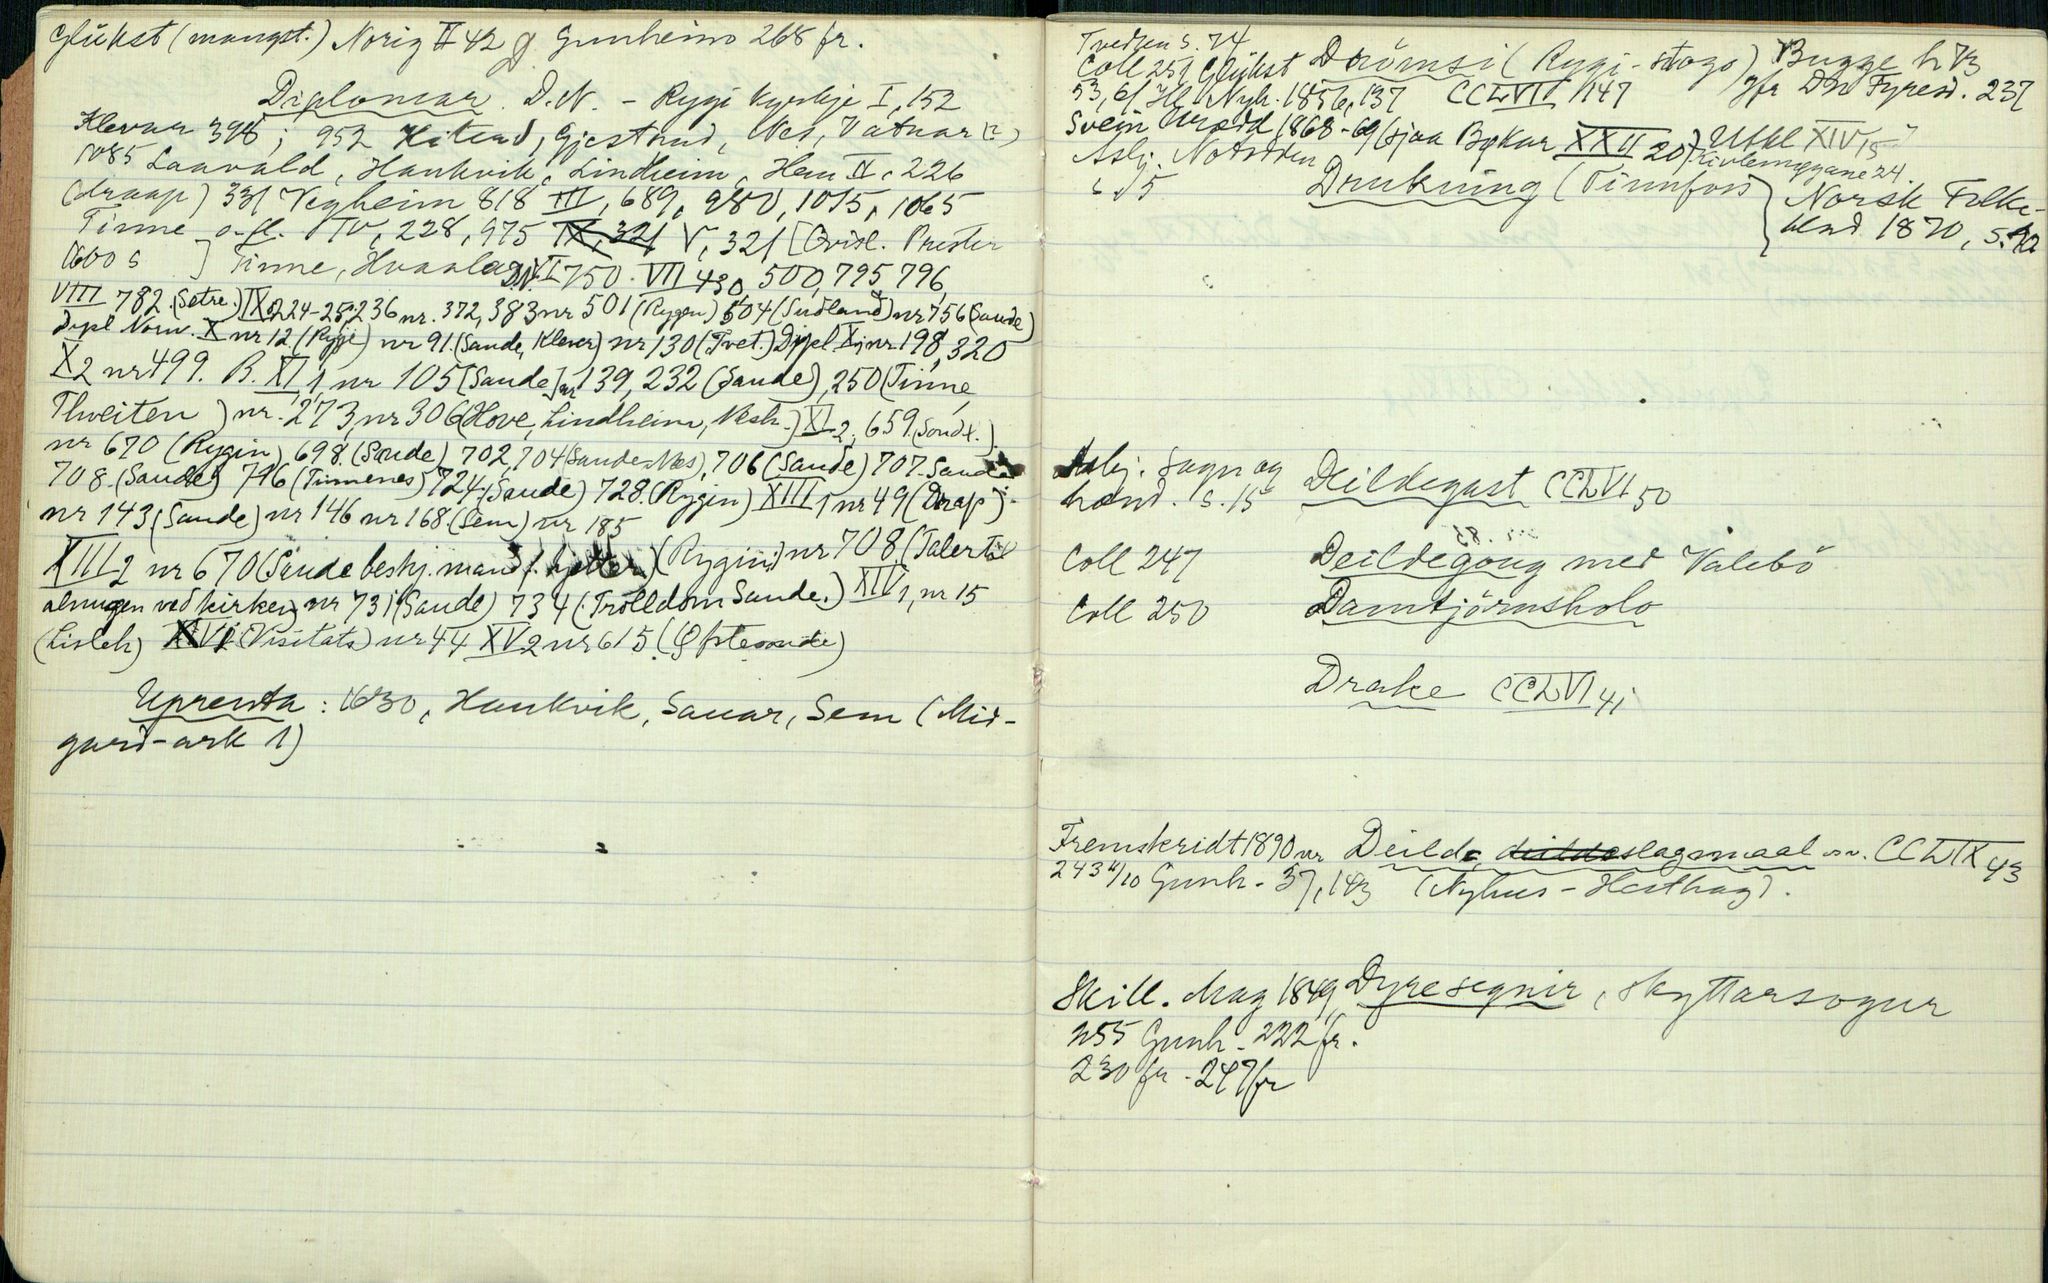 Glükst (mangst.) Norig II 42 g Gunheims 268 fr.
Diplomar. D.N. - Rygi kyrkje I, 152
Klevar 398; 952 Gjestrud, Nes, Vatnar (?)
1085 Laavald, Haukvik, Lindheim, Hem II, 226
(draap) 331 Vegheim 818 III, 689, 980, 1015, 1065
Tinne o. fl. IV, 228, 975 IX, 321 V, 321 [Qvisl. Prester
1600 s ] Tinne, D.N. VI 750. VII 430, 500, 795, 796,
VIII 782. (Sætre.) IX 224-25, 236 nr. 372, 383 nr 501 (Rygen) 504 (Sudland) nr 756 (Saude)
Dipl Norv. X nr 12 (Rygi) nr 91. (Saude, Klever) nr 130 (Tvet.) Dipl X, nr 198, 320
X2 nr 499. B. XI, 1, nr 105 [Saude] nr 139, 232 (Saude), 250 (Tinne,
Thveiten) nr. 273, nr 306 (Hove, Lindheim, Nesh.) XI 2, 659
nr 670 (Rygin) 698. (Saude) 702, 704 (Saude Nes), 706 (Saude) 707. Saude
708. (Saude) 716 (Tinnenes) 724. (Saude) 728. (Rygin) XIII 1 nr 49 (Drap).
nr 143 (Saude) nr 146 nr 168. (Sem) nr 185
XIII 2 nr 670 (Saude beskj. mand f. (Rygin) nr 708 (Taler til
almugen ved kirken) nr 731 (Saude) 734 (Trolldom Saude.) XIV 1, nr 15
(Lisleh) XVI (Visitats) nr 44 XV 2 nr 615 (Øfstesoude)
Uprenta: 1630, Haukvik, Sauar, Sem (Mid-
gard-ark 1)
Tvedten s. 74
Coll 251 Glükst Draumsi (Rygi-stogo) Bugge h 73
53, 61 Ill Nyh. 1856, 137 CCLVII 147 jfr DN Fyresd. 237
Svein Uræd 1868-69 (sjaa Bøkar XXII 20) Utkl XIV 15
Asbj. Notodden Kivlemøyane 24.
6 15 Drukning (Tinnfoss) Norsk Folke-
blad 1870, s. 72
Asbj. Sagn og Deildegast CCLVI 50
hænd. s. 15
Coll 247 Deildegong med Valebö
Coll 250 Damtjörnsholo
Drake CCLVI 41
Fremskridt 1890 nr Deilde, deildeslagsmaal o.v. CCLIX 43
243 4/10 Gunh. 37, 143 (Nyhus - Hesthag).
Skill. Mag 1849, Dyresegnir, skyttarsogur
255 Gunh. 222 fr.
230 fr. - 247 fr